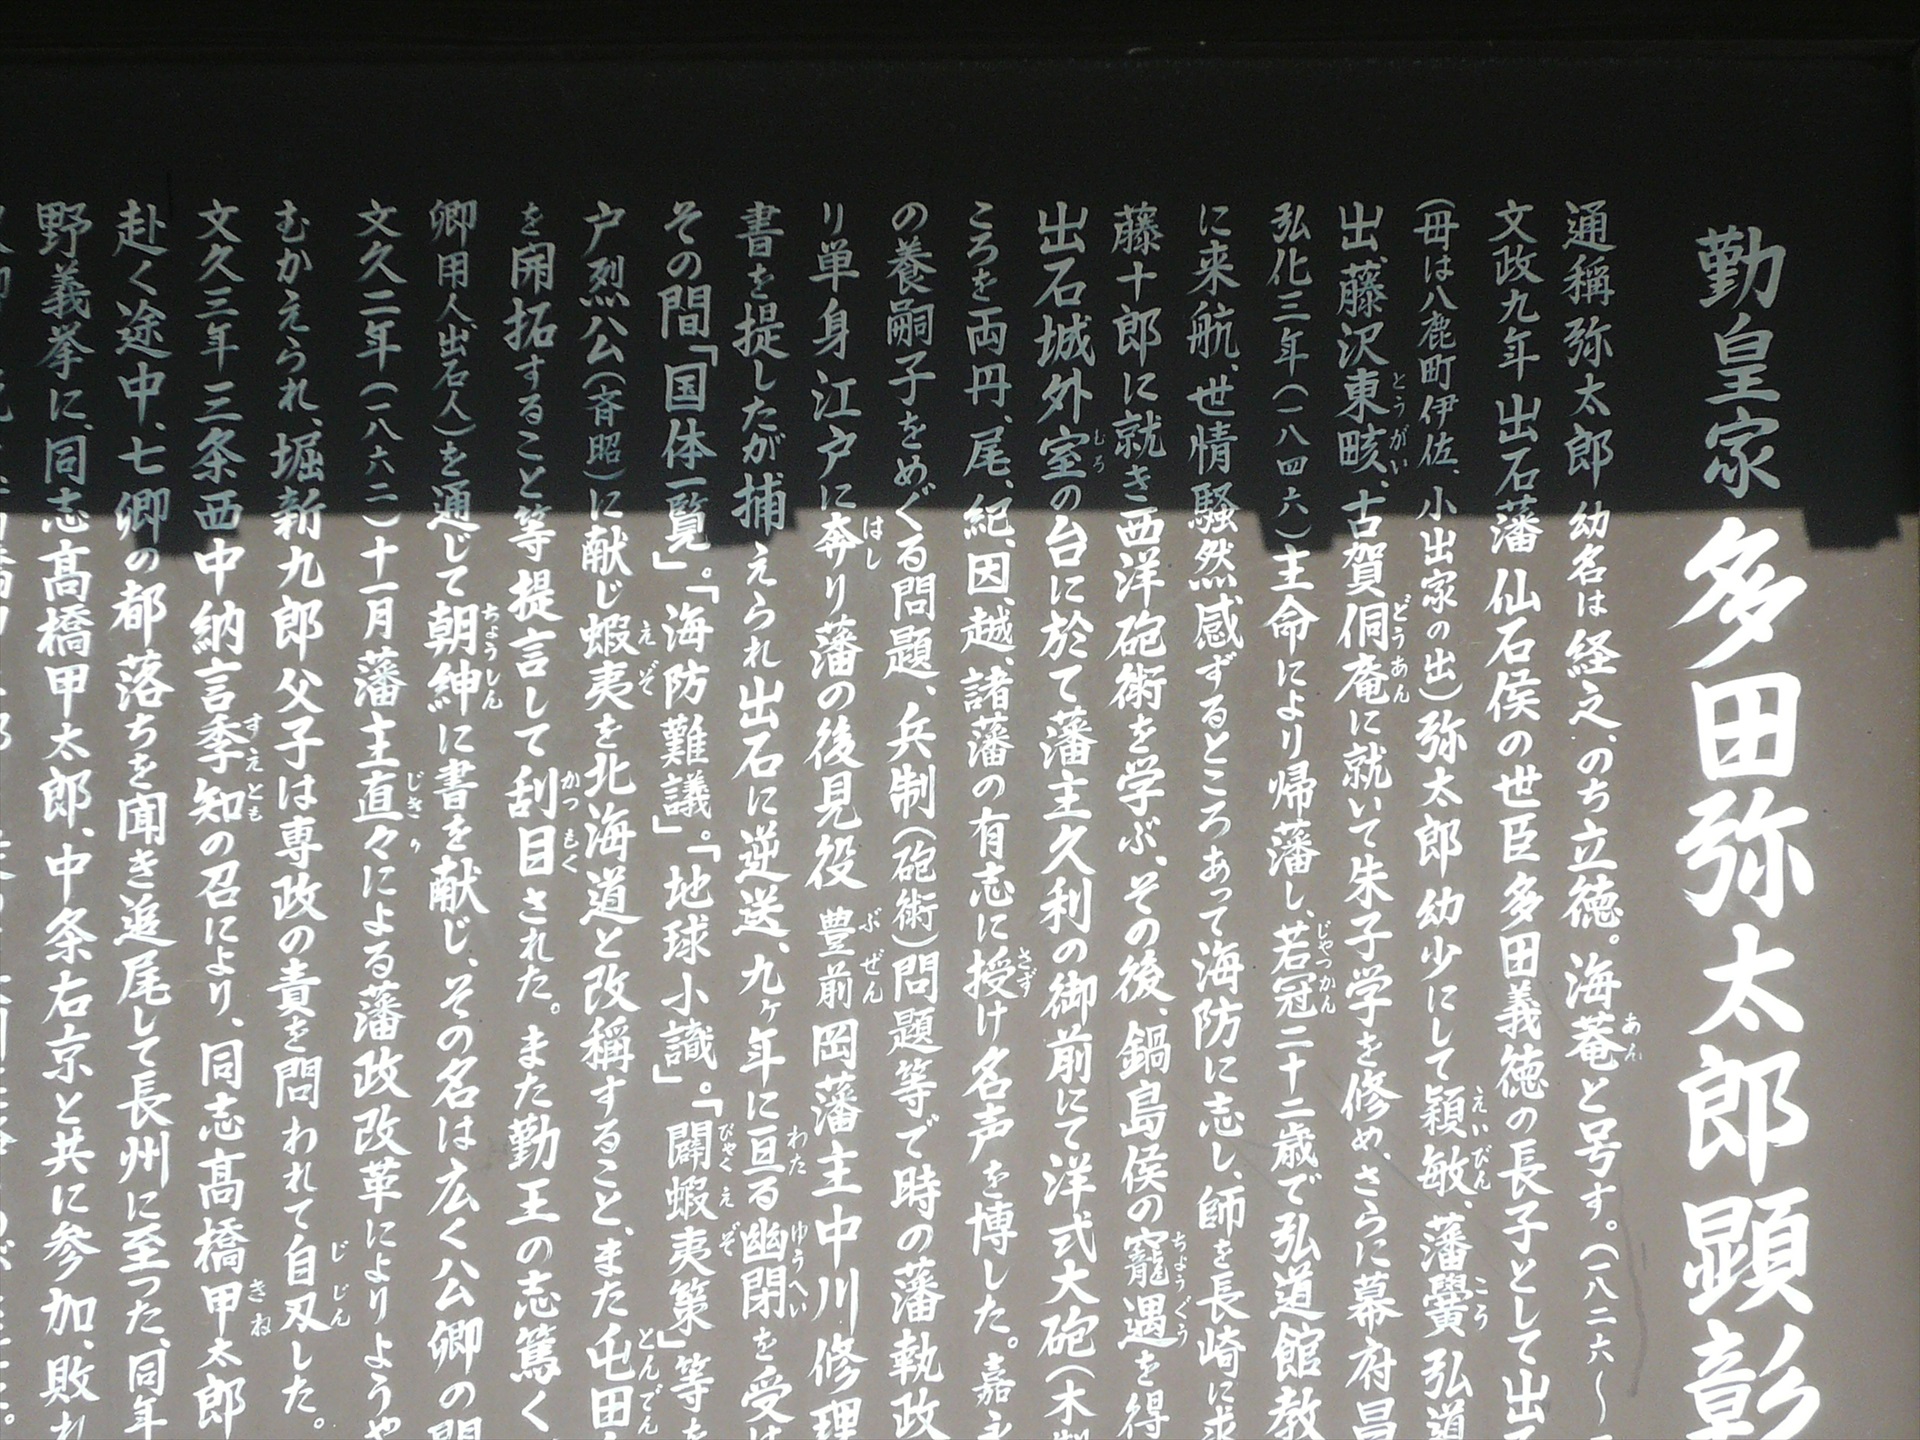 勤皇家 多田弥太郎顕彰
通稱 弥太郎 幼名は経之、のち立徳。海菴と号す。(一八二六〜
文政九年 出石藩 仙石侯の世臣多田義徳の長子として出
(母は八鹿町伊佐、小出家の出)弥太郎幼少にして穎敏、藩黌弘道
出、藤沢東畡、古賀侗庵に就いて朱子学を修め、さらに幕府昌
弘化三年(一八四六)主命により帰藩し、若冠二十二歳で弘道館教
に来航、世情騒然、感ずるところあって海防に志し、師を長崎に求
藤十郎に就き西洋砲術を学ぶ、その後、鍋島侯の寵遇を得
出石城外室の台に於て藩主久利の御前にて洋式大砲(木
ころを両丹、尾、紀、因、越、諸藩の有志に授け名声を博した。嘉永
の養嗣子をめぐる問題、兵制(砲術)問題等で時の藩執政
り単身江戸に奔り藩の後見役 豊前岡藩主中川修理
書を提したが、捕えられ出石に逆送、九ヶ年に亘る幽閉を受け
その間「国体一覧」。「海防難議」。「地球小識」。「闢蝦夷策」等を
戸烈公(斉昭)に献じ蝦夷を北海道と改稱すること、また屯田
を開拓すること等提言して刮目された。また勤王の志篤く
卿用人、出石人)を通じて朝紳に書を献じ、その名は広く公卿の間
文久二年(一八六二)十一月藩主直々による藩政改革によりようや
むかえられ、堀新九郎父子は専政の責を問われて自刃した。
文久三年三条西中納言季知の召により、同志高橋甲太郎
赴く途中、七卿の都落ちを聞き追尾して長州に至った、同年
野義挙に、同志高橋甲太郎、中条右京と共に参加、敗れ